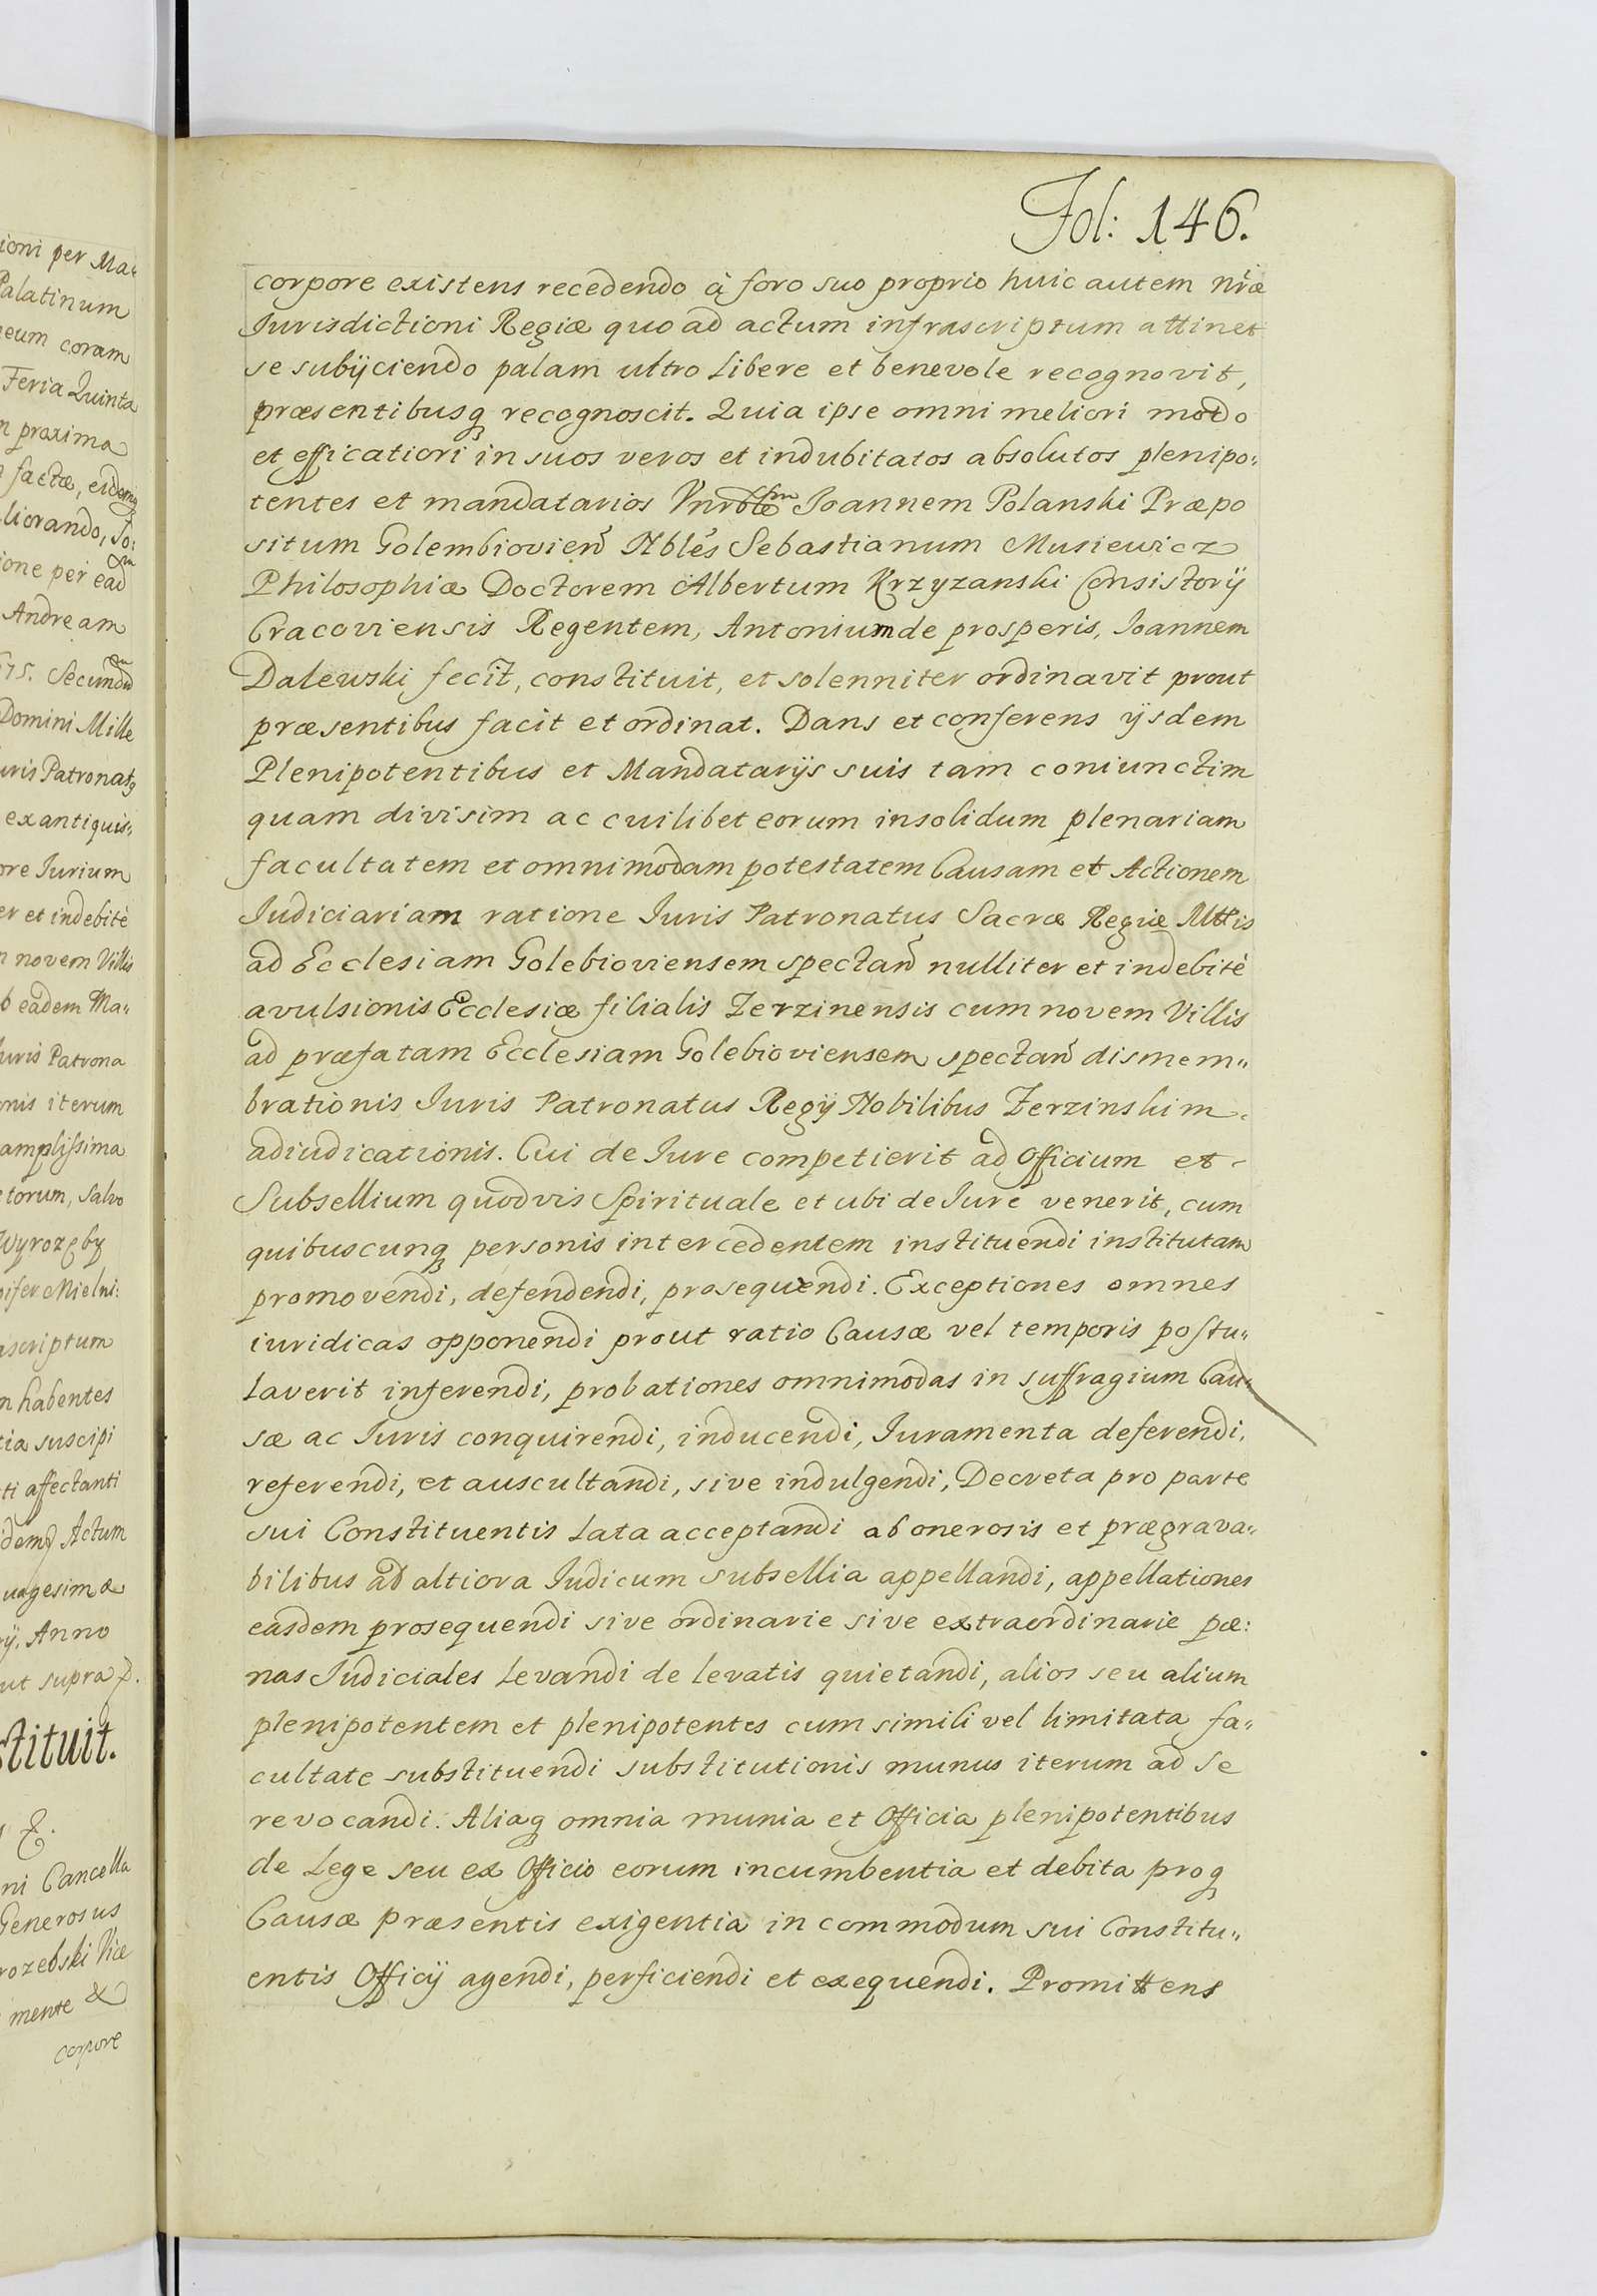 ioni per Ma„
Palatinum
eum coram
Feria Quinta
n proxima
factæ, eidemq
liorando, Jo:
ione per eadm
Andream
675. Secundũ
Domini Mille
uris Patronatq
ex antiquis„
ore Iurium
er et indebitè
n novem Villis
b eadem Ma„
Iuris Patrona
onis iterum
amplissima
torum, salvo
Wyrozęby
pifer Mielni:
ascriptum
n habentes
tia suscipi
ti affectanti
idemq Actum
uagesimæ
rij. Anno
ut supra
stituit.
ni Cancella
Generosus
rozebski Vice
mente &
corpore
Fol: 146.
corpore existens recedendo à foro suo proprio huic autem nr̃æ
Iurisdictioni Regiæ quo ad actum infrascriptum attinet
se subijciendo palam ultro libere et benevole recognovit,
præsentibusq recognoscit. Quia ipse omni meliori modo
et efficatiori in suos veros et indubitatos absolutos plenipo„
tentes et mandatarios Vnrblem Joannem Polanski Præpo
situm Golembiovien̄ Nblẽs Sebastianum Musiewicz
Philosophiæ Doctorem Albertum Krzyzanski Consistorij
Cracoviensis Regentem, Antonium de prosperis, Joannem
Dalewski fecit, constituit, et solenniter ordinavit prout
præsentibus facit et ordinat. Dans et conferens ijsdem
Plenipotentibus et Mandatarijs suis tam coniunctim
quam divisim ac cuilibet eorum insolidum plenariam
facultatem et omnimodam potestatem Causam et Actionem
Iudiciariam ratione Iuris Patronatus Sacræ Regiæ Mttis
ad Ecclesiam Golebioviensem spectan̄ nulliter et indebitè
avulsionis Ecclesiæ filialis Zerzinensis cum novem Villis
ad præfatam Ecclesiam Golebioviensem spectan̄ dismem„
brationis Iuris Patronatus Regij Nobilibus Zerzinskim
adiudicationis. Cui de Iure competierit ad Officium et
Subsellium quodvis Spirituale et ubi de Iure venerit, cum
quibuscunq personis intercedentem instituendi institutam
promovendi, defendendi, prosequendi. Exceptiones omnes
iuridicas opponendi prout ratio Causæ vel temporis postu„
laverit inferendi, probationes omnimodas in suffragium Cau„
sæ ac Iuris conquirendi, inducendi, Iuramenta deferendi,
referendi, et auscultandi, sive indulgendi, Decreta pro parte
sui Constituentis lata acceptandi ab onerosis et prægrava„
bilibus ad altiora Iudicum subsellia appellandi, appellationes
easdem prosequendi sive ordinarie sive extraordinarie pæ:
nas Iudiciales levandi de levatis quietandi, alios seu alium
plenipotentem et plenipotentes cum simili vel limitata fa„
cultate substituendi substitutionis munus iterum ad se
revocandi. Aliaq omnia munia et Officia plenipotentibus
de Lege seu ex Officio eorum incumbentia et debita proq
Causæ præsentis exigentia in commodum sui Constitu„
entis Officij agendi, perficiendi et exequendi. Promittens